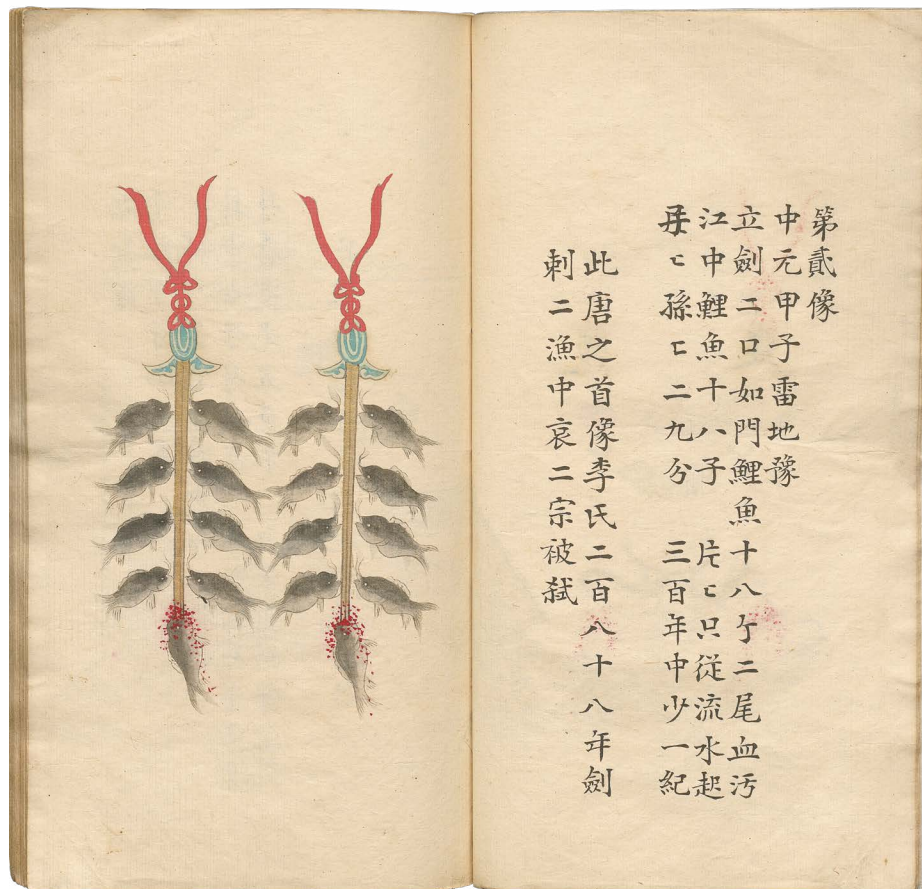 第貳像
中元甲子雷地豫
立劍二口如門鯉魚十八亇二尾血污
江中鯉魚十八子　片〻只從流水起
〻孫〻二九分　三百年中少一紀
此唐之首像李氏二百八十八年劍
刺二漁中哀二宗被弒